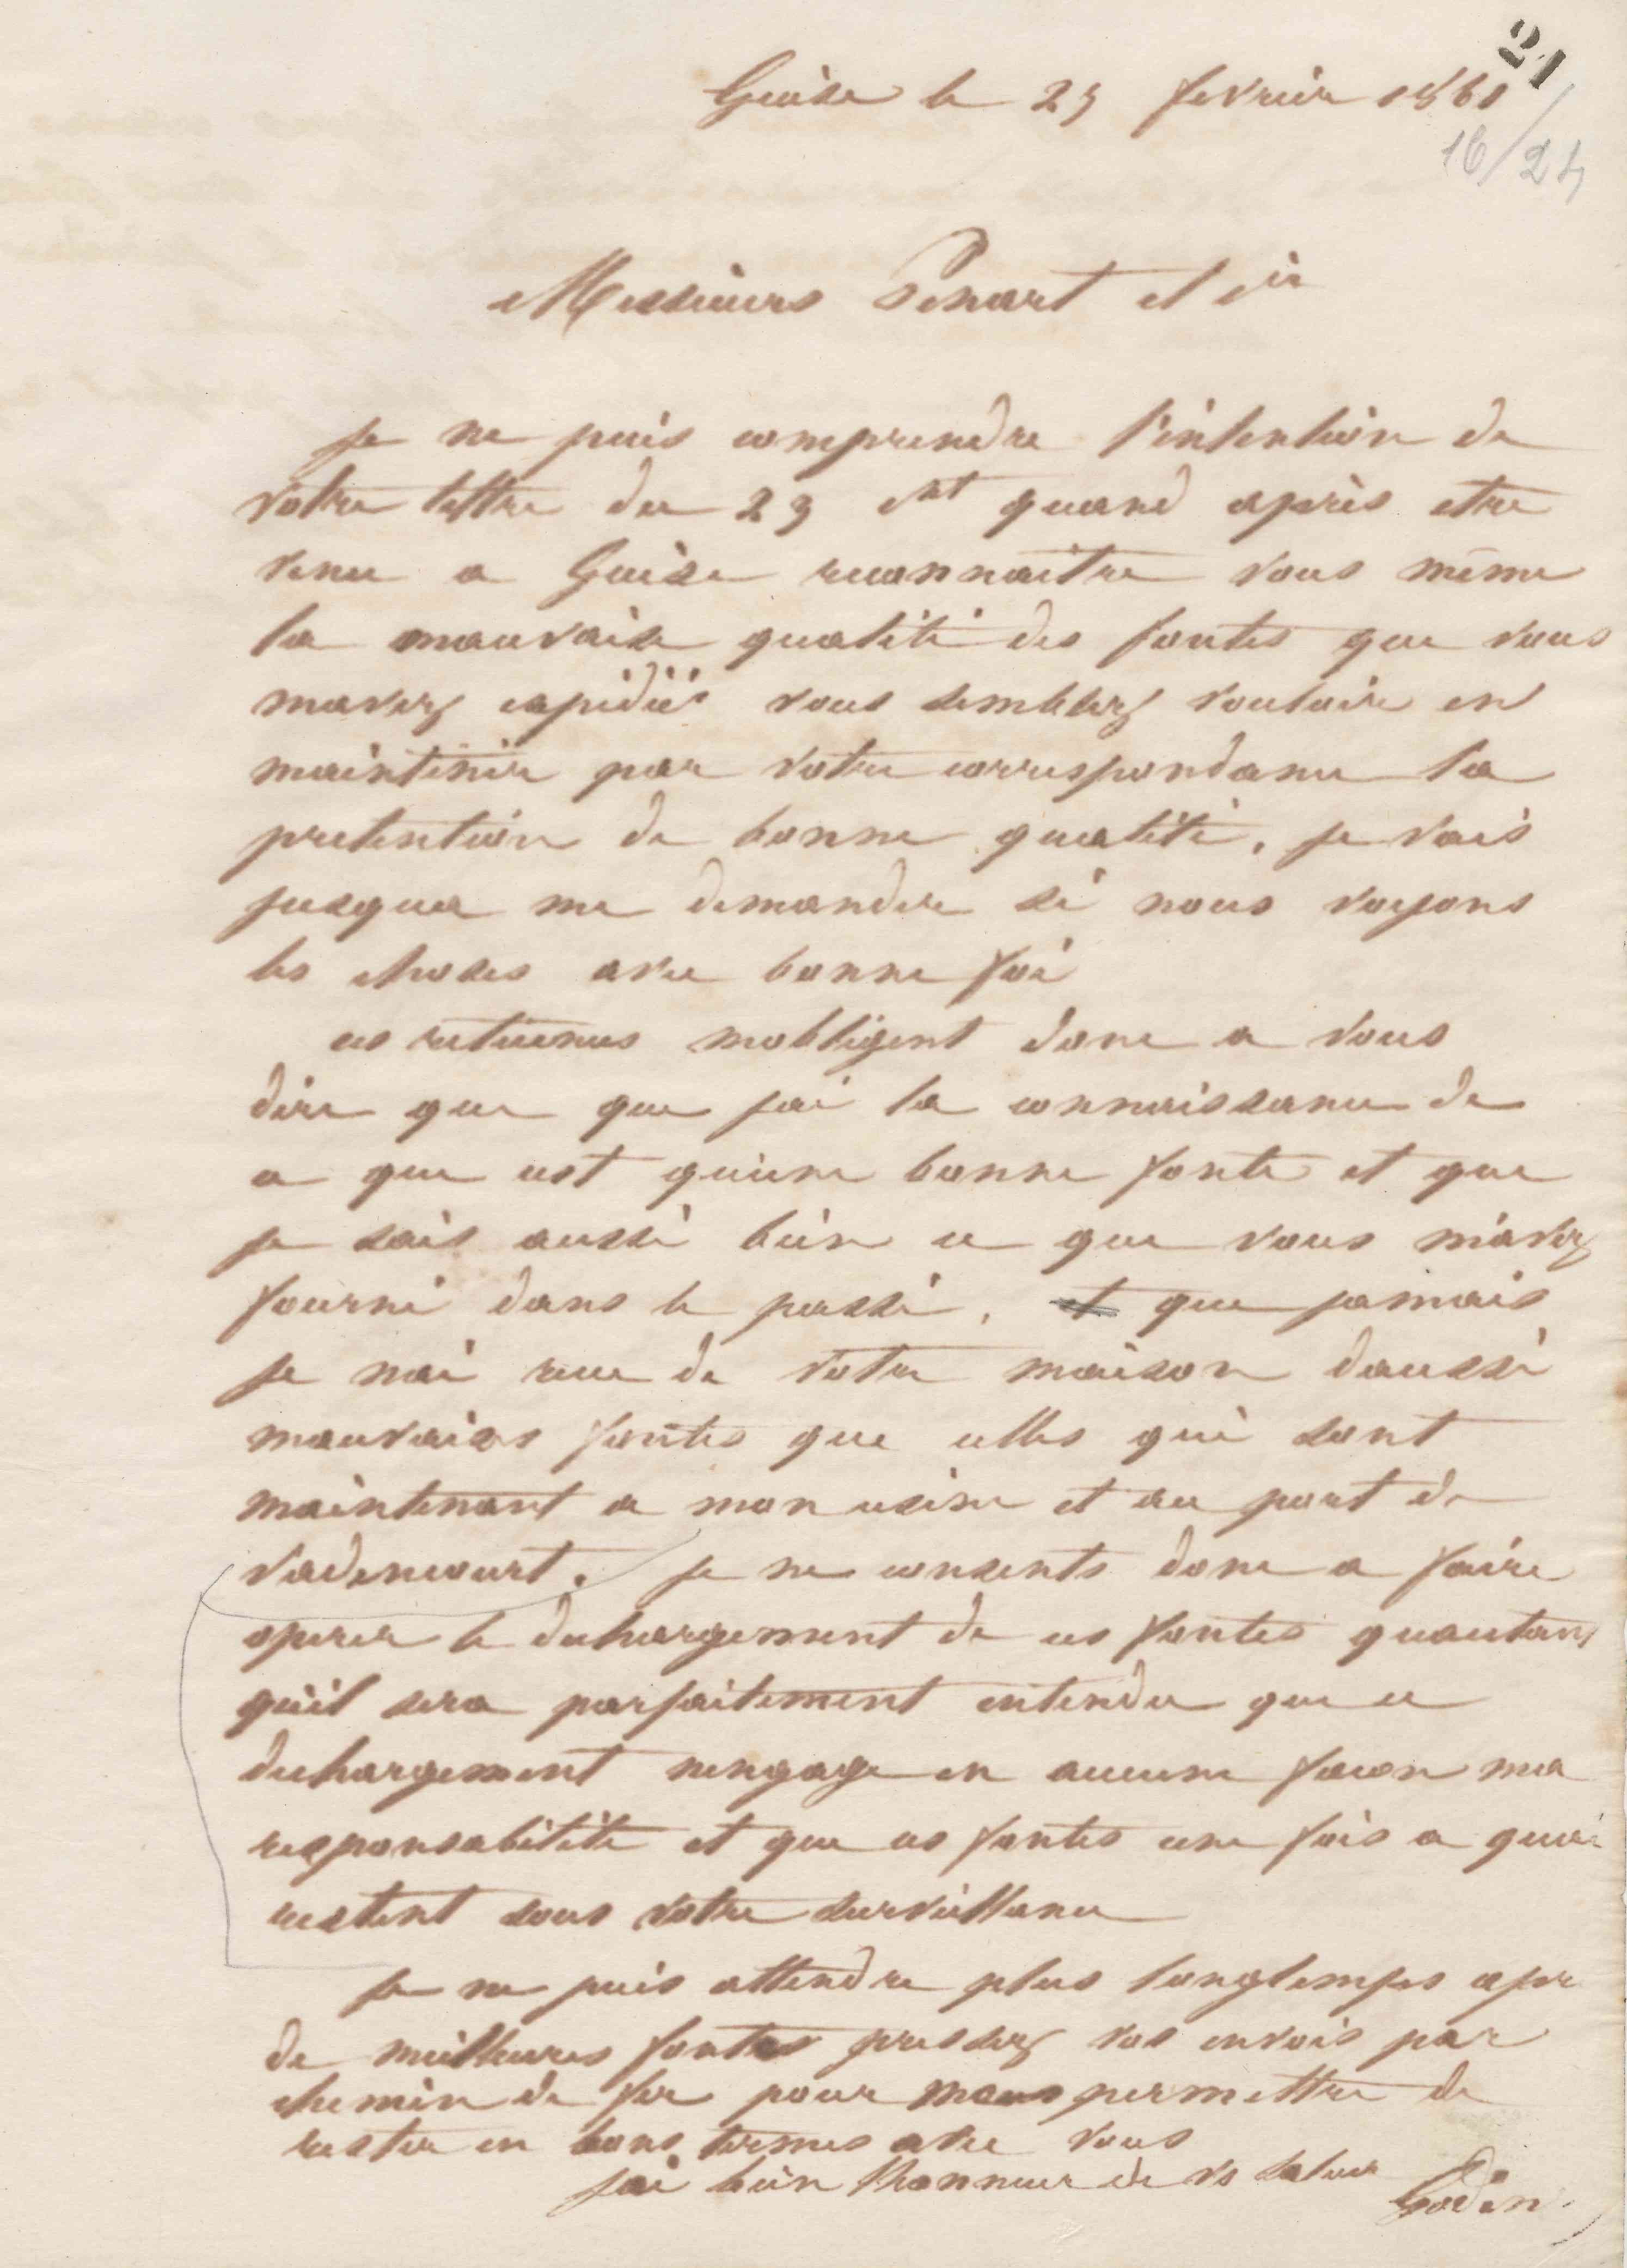 21
Guise le 25 fevrier 1861
16/24
Messieurs Penart et Cie
je ne puis comprendre l'intention de
votre lettre du 23 ct quand après etre
venu a Guise reconnaitre vous même
la mauvaise qualité des fontes que vous
mavez expédiée vous semblez vouloir en
maintenir par votre correspondance la
pretention de bonne qualité, je vais
jusqua me demander si nous voyons
les choses avec bonne foi
ces mobligent donc a vous
dire que que jai la connaissance de
ce que cest qu'une bonne fonte et que
je sais aussi bien ce que vous m'avez
fourni dans le passé, et que jamais
je nai recu de votre maison daussi
mauvaises fontes que celles qui sont
maintenant a mon usine et au port de
Vadencourt. je ne consents donc a faire
operer le dechargement de ces fontes quautant
qu'il sera parfaitement entendu que ce
dechargement nengage en aucune facon ma
responsabilité et que ces fontes une fois a quai
restent sous votre surveillance
je ne puis attendre plus longtemps apr
de meilleures fontes pressez vos envois par
chemin de fer pour permettre de
rester en bons termes avec vous
jai bien lhonneur de vs saluer
Godin